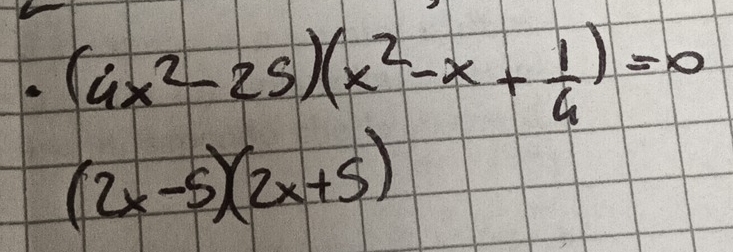 · (4x² - 25)(x² - x + 1/4) = 0
(2x - 5)(2x + 5)